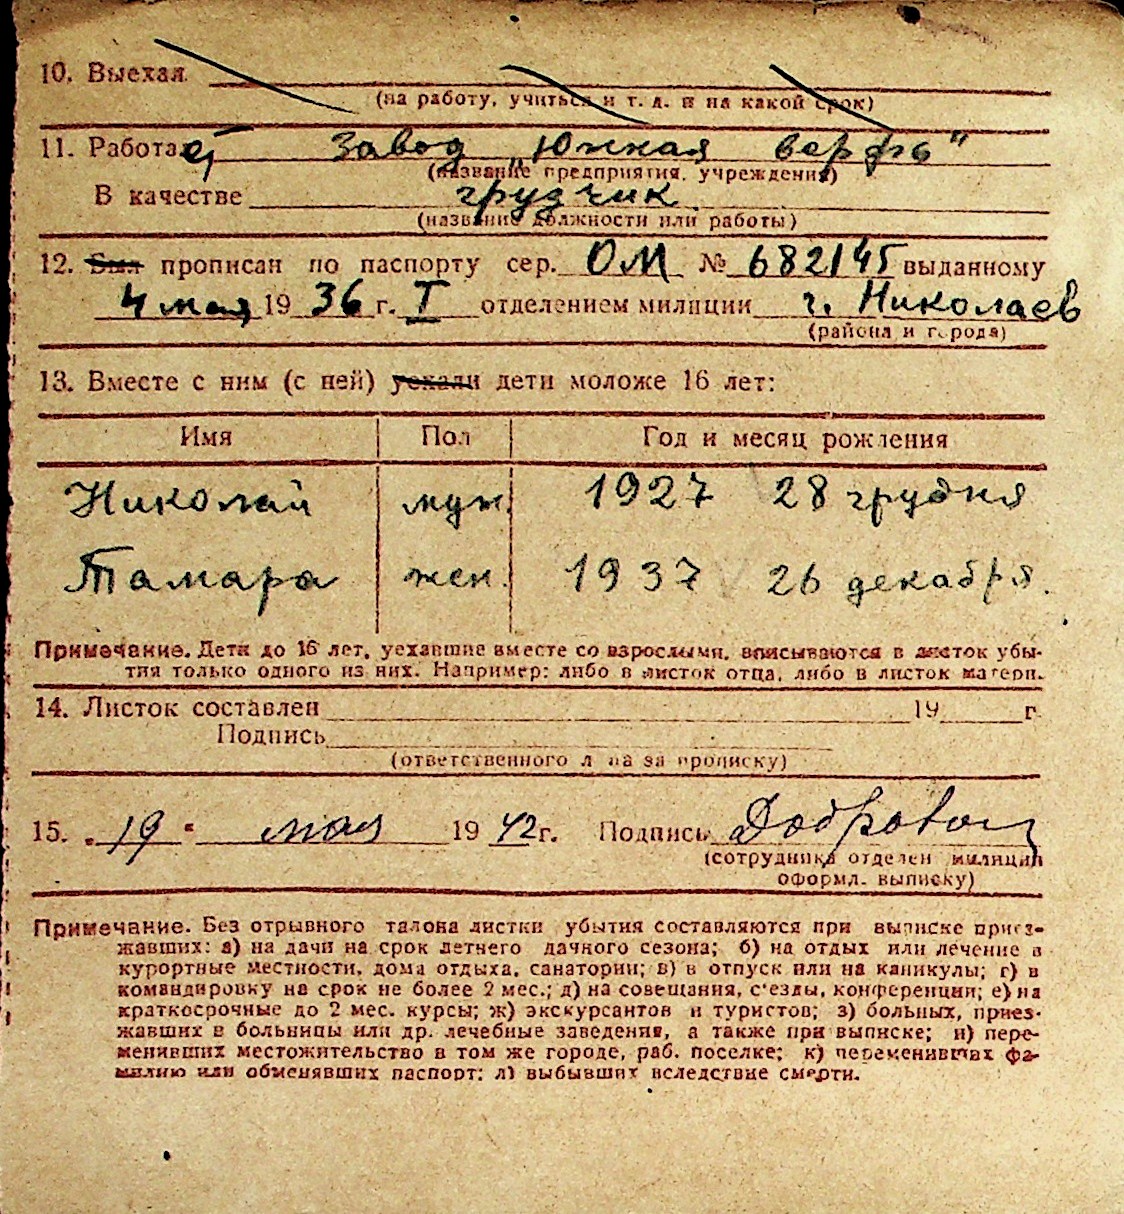 10. Выехал
(на работу, учиться и т. д. и на какой срок)
11. Работает завод „Южная верфь"
(название предприятия, учреждения)
В качестве грузчик
(название должности или работы)
12. Был прописан по паспорту сер. ОМ № 682145 выданному
4 мая 1936 г. I отделением милиции г. Николаев
(района и города)
13. Вместе с ним (с ней) уехали дети моложе 16 лет:
Имя Пол Год и месяц рождения
Николай муж. 1927 28 грудня
Тамара жен. 1937 26 декабря.
Примечание. Дети до 16 лет, уехавшие вместе со взрослыми, вписываются в листок убы-
тия только одного из них. Например: либо в листок отца, либо в листок матери.
14. Листок составлен 19 г.
Подпись
(ответственного лица за прописку)
15. „19" мая 1942 г. Подпись
(сотрудника отделен милиции
оформл. выписку)
Примечание. Без отрывного талона листки убытия составляются при выписке приез-
жавших: а) на дачи на срок летнего дачного сезона; б) на отдых или лечение в
курортные местности, дома отдыха, санатории; в) в отпуск или на каникулы; г) в
командировку на срок не более 2 мес.; д) на совещания, с'езды, конференции; е) на
краткосрочные до 2 мес. курсы; ж) экскурсантов и туристов; з) больных, приез-
жавших в больницы или др. лечебные заведения, а также при выписке; и) пере-
менивших местожительство в том же городе, раб. поселке; к) переменивших фа-
милию или обменявших паспорт; л) выбывших вследствие смерти.